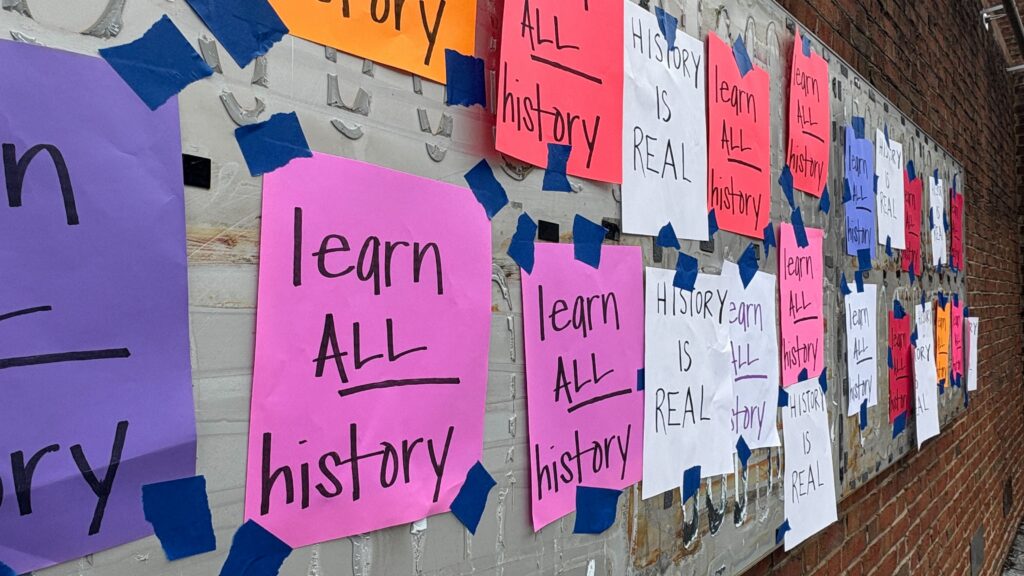 history
ALL
history
HISTORY
IS
REAL
learn
ALL
history
learn
ALL
history
learn
ALL
history
HISTORY
IS
REAL
n
ory
learn
ALL
history
learn
ALL
history
HISTORY
IS
REAL
earn
ALL
tory
learn
ALL
history
HISTORY
IS
REAL
learn
ALL
history
learn
ALL
history
HISTORY
IS
REAL